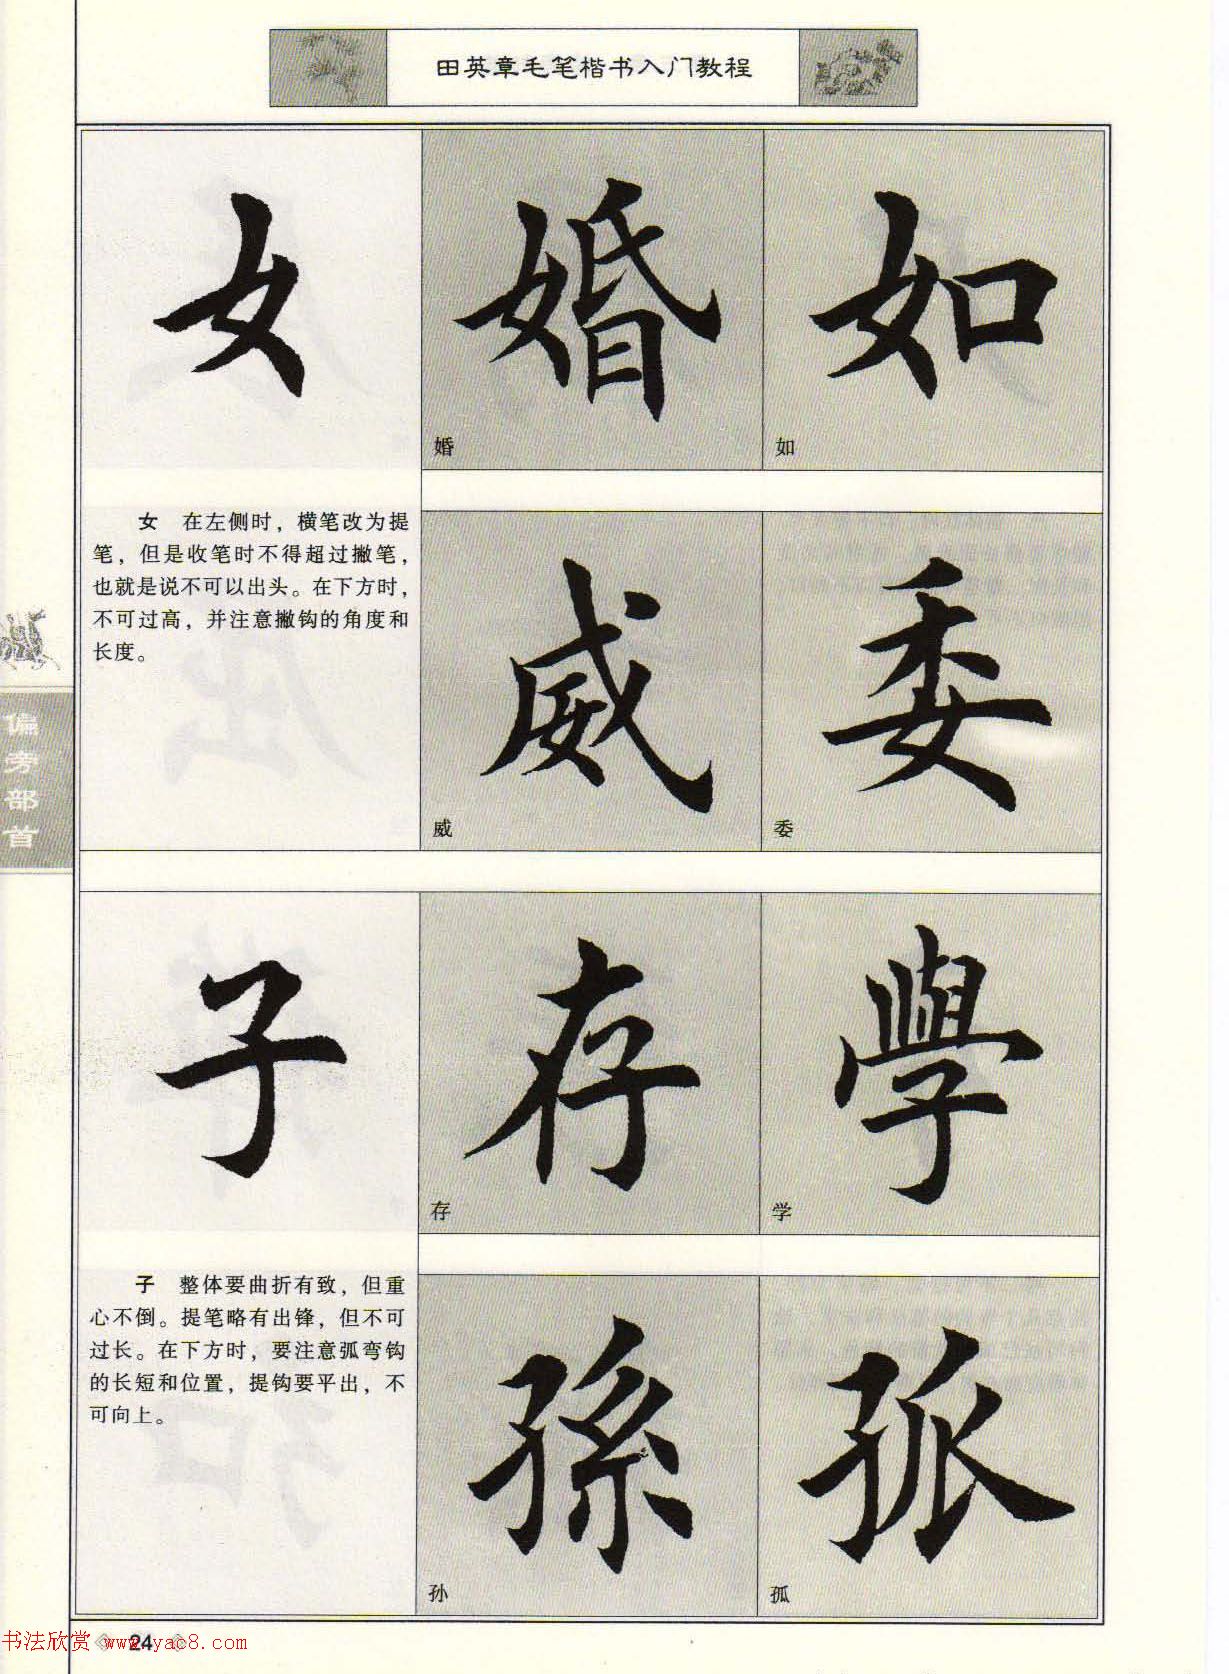 田英章毛笔楷书入门教程
女 婚 如
婚 如
女 在左侧时，横笔改为提
笔，但是收笔时不得超过撇笔，
也就是说不可以出头。在下方时，
不可过高，并注意撇钩的角度和
长度。
威 委
威 委
偏旁部首
子 存 學
存 学
子 整体要曲折有致，但重
心不倒。提笔略有出锋，但不可
过长。在下方时，要注意弧弯钩
的长短和位置，提钩要平出，不
可向上。
孫 孤
孙 孤
24
书法欣赏 www.yac8.com